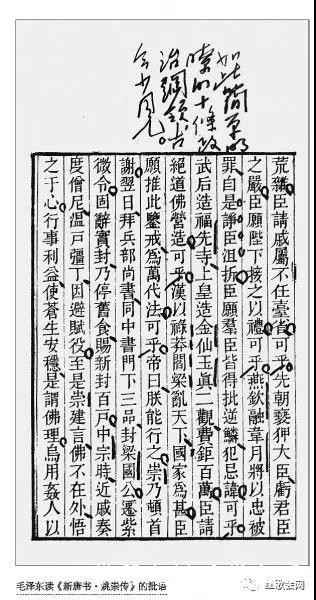 如此簡单明
瞭的十條政
治綱領古
今少見。
荒雜臣請戚屬不任臺省可乎先朝褻狎大臣虧君臣
之嚴臣願陛下接之以禮可乎燕欽融韋月將以忠被
罪自是諍臣沮折臣願羣臣皆得批逆鱗犯忌諱可乎
武后造福先寺上皇造金仙玉真二觀費鉅百萬臣請
絕道佛營造可乎漢以祿莽閻梁亂天下國家爲甚臣
願推此鑒戒爲萬代法可乎帝曰朕能行之崇乃頓首
謝翌日拜兵部尚書同中書門下三品封梁國公遷紫
微令固辭實封乃停舊食賜新封百戶中宗時近戚奏
度僧尼溫戶彊丁因避賦役至是崇建言佛不在外悟
之于心行事利益使蒼生安穩是謂佛理烏用姦人以
毛泽东读《新唐书·姚崇传》的批语
红歌会网